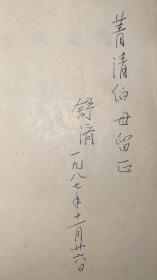 菁清伯母留正
舒济
一九八七年十一月廿六日